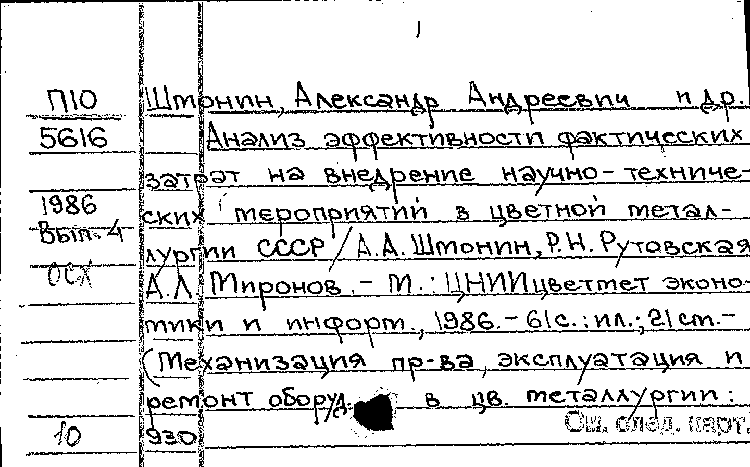 1
П10 Штонин, Александр Андреевич и др.
5616 Анализ эффективности фактических
затрат на внедрение научно-техниче-
1986 ских мероприятий в цветной метал-
Вып. 4 лургии СССР / А.А. Штонин, Р.Н. Рутавская
ОСХ А.Л. Миронов. - М.: ЦНИИцветмет эконо-
мики и информ., 1986. - 61с.: ил.; 21см. -
(Механизация пр-ва, эксплуатация и
ремонт оборуд. в цв. металлургии:
10 930 См. след. карт.